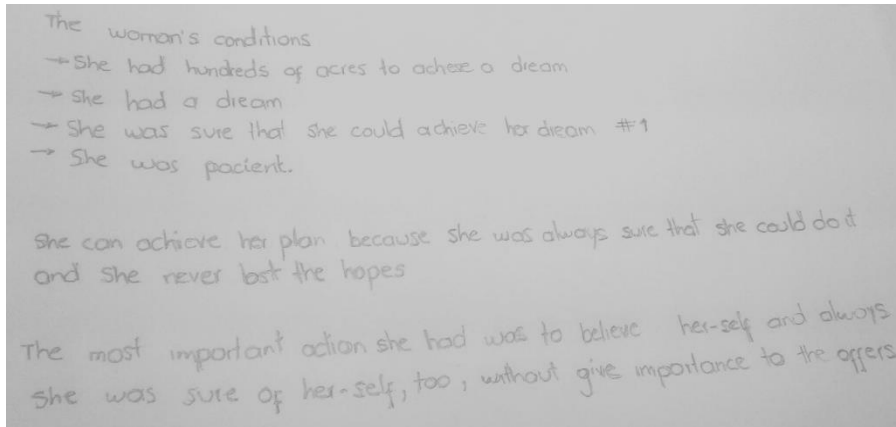 The woman's conditions
→ She had hundreds of acres to achee a dream
→ She had a dream
→ She was sure that she could achieve her dream #1
→ She was pacient.
She can achieve her plan because she was always sure that she could do it
and she never lost the hopes
The most important action she had was to believe her-self and always
she was sure of her-self, too, without give importance to the offers